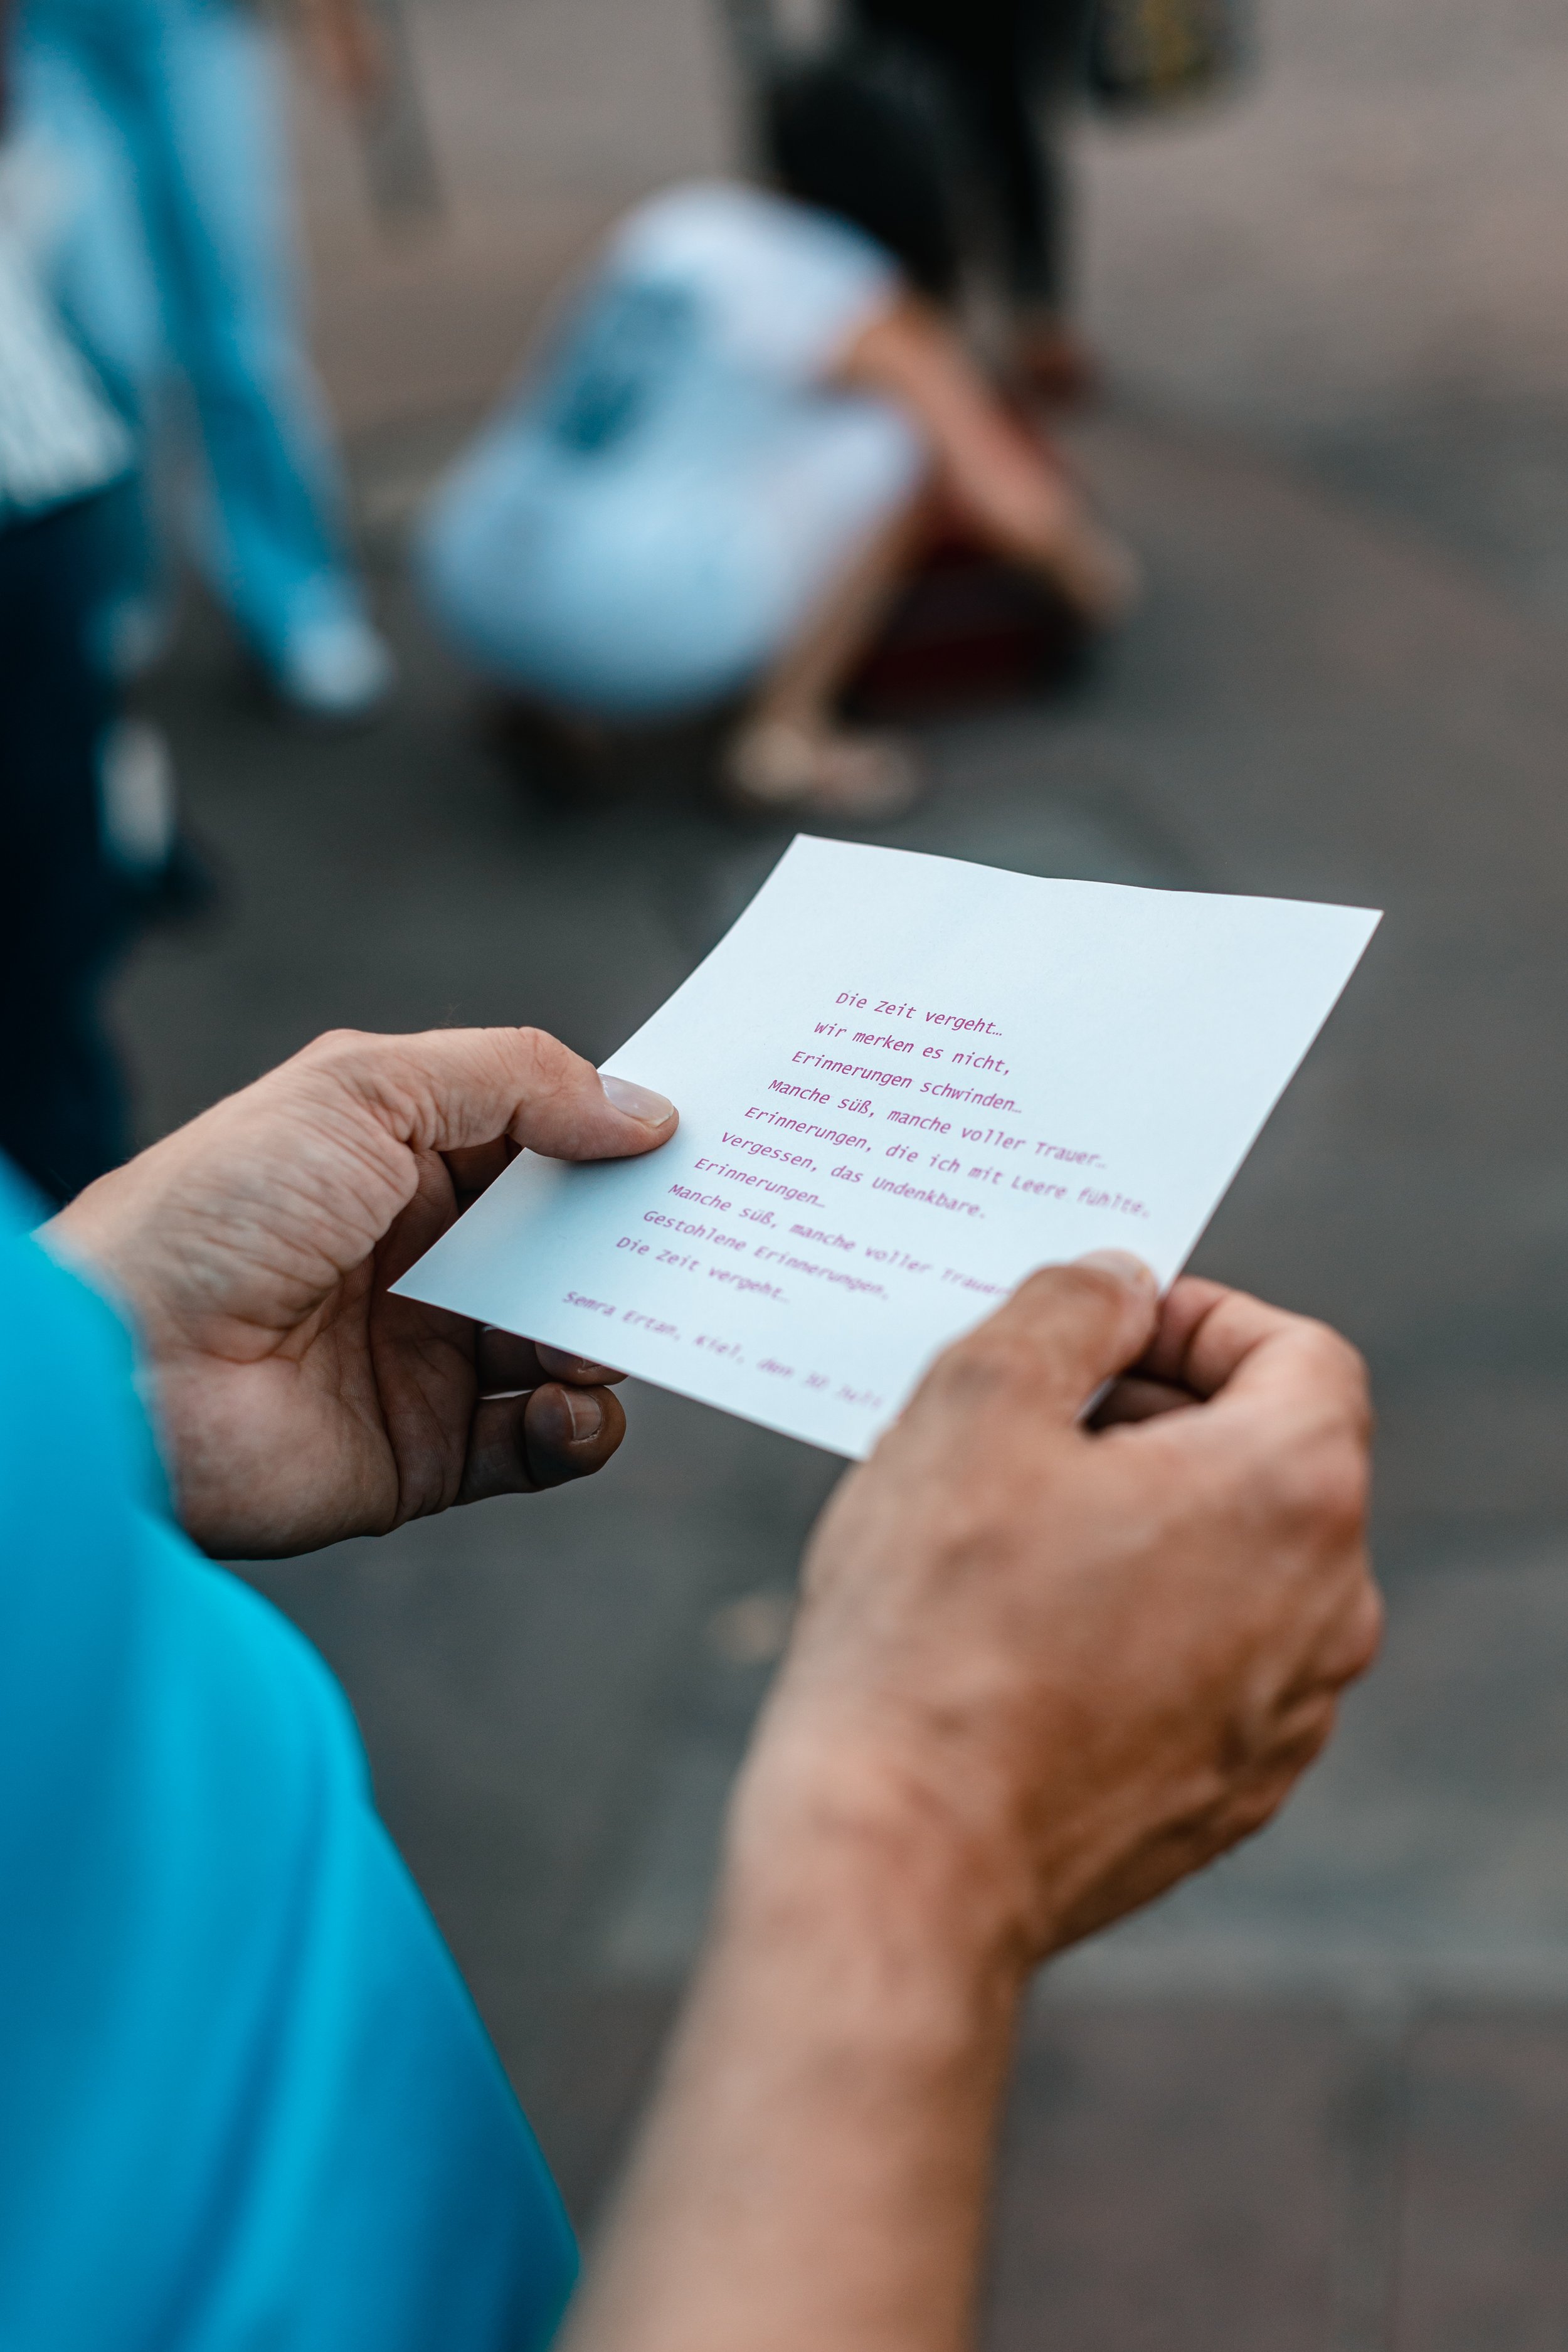 Die Zeit vergeht…
Wir merken es nicht,
Erinnerungen schwinden…
Manche süß, manche voller Trauer…
Erinnerungen, die ich mit Leere fühlte.
Vergessen, das Undenkbare.
Erinnerungen…
Manche süß, manche voller Trauer
Gestohlene Erinnerungen.
Die Zeit vergeht…
Semra Ertan, Kiel, den